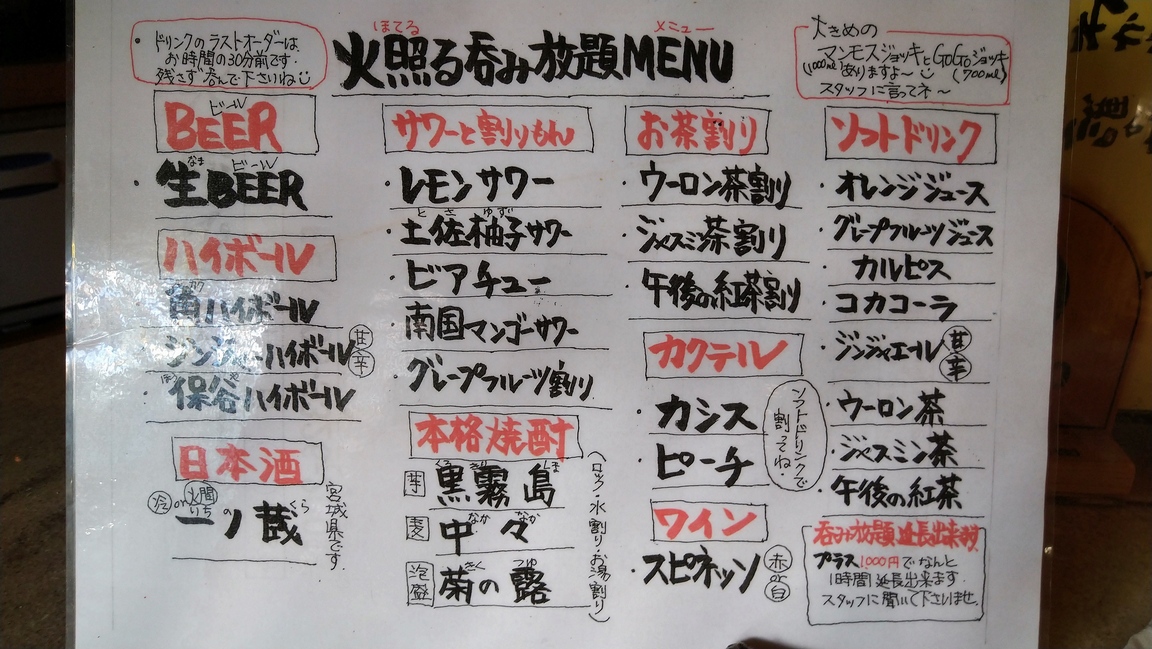 ・ドリンクのラストオーダーは、
お時間の30分前です。
残さず呑んで下さいね
ほてる メニュー
火照る呑み放題MENU
大きめの
マンモスジョッキとGoGoジョッキ
(1000ml)ありますよ〜(700ml)
スタッフに言ってネ〜
ビール
BEER
なま ビール
・生BEER
ハイボール
角ハイボール
ジンジャーハイボール 甘 辛
保谷ハイボール
日本酒
冷 or
一ノ蔵
くら
宮城県です。
サワーと割りもん
・レモンサワー
とさ ゆず
・土佐柚子サワー
・ビアチュー
・南国マンゴーサワー
・グレープフルーツ割り
本格焼酎
芋 黒霧島
しま
麦 中々
なか なか
泡盛 菊の露
きく つゆ
(ロック・水割り・お湯割り)
お茶割り
・ウーロン茶割り
・ジャスミン茶割り
・午後の紅茶割り
カクテル
・カシス
・ピーチ
ソフトドリンクで
割ってね。
ワイン
・スピネッソ 赤or白
ソフトドリンク
・オレンジジュース
・グレープフルーツジュース
カルピス
・コカコーラ
・ジンジャエール 甘 辛
・ウーロン茶
・ジャスミン茶
・午後の紅茶
呑み放題延長出来ます
プラス1000円でなんと
1時間延長出来ます。
スタッフに聞いて下さいませ。